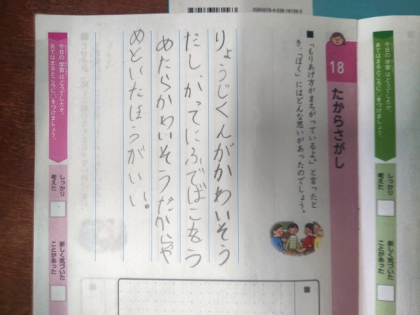 18 たからさがし
■「もりあげ方がまちがっているよ」と言ったと
き、「ぼく」にはどんな思いがあったのでしょう。
りょうじくんがかわいそう
だし、かってにふでばこをつ
めたらかわいそうだからや
めといたほうがいい。
今日の学習はどうでしたか。
あてはまるところに、○をつけましょう。
しっかり
考えた
新しく気づいた
ことがあった
今日の学習はどうでしたか。
あてはまるところに、○をつけましょう。
しっかり
考えた
新しく気づいた
ことがあった